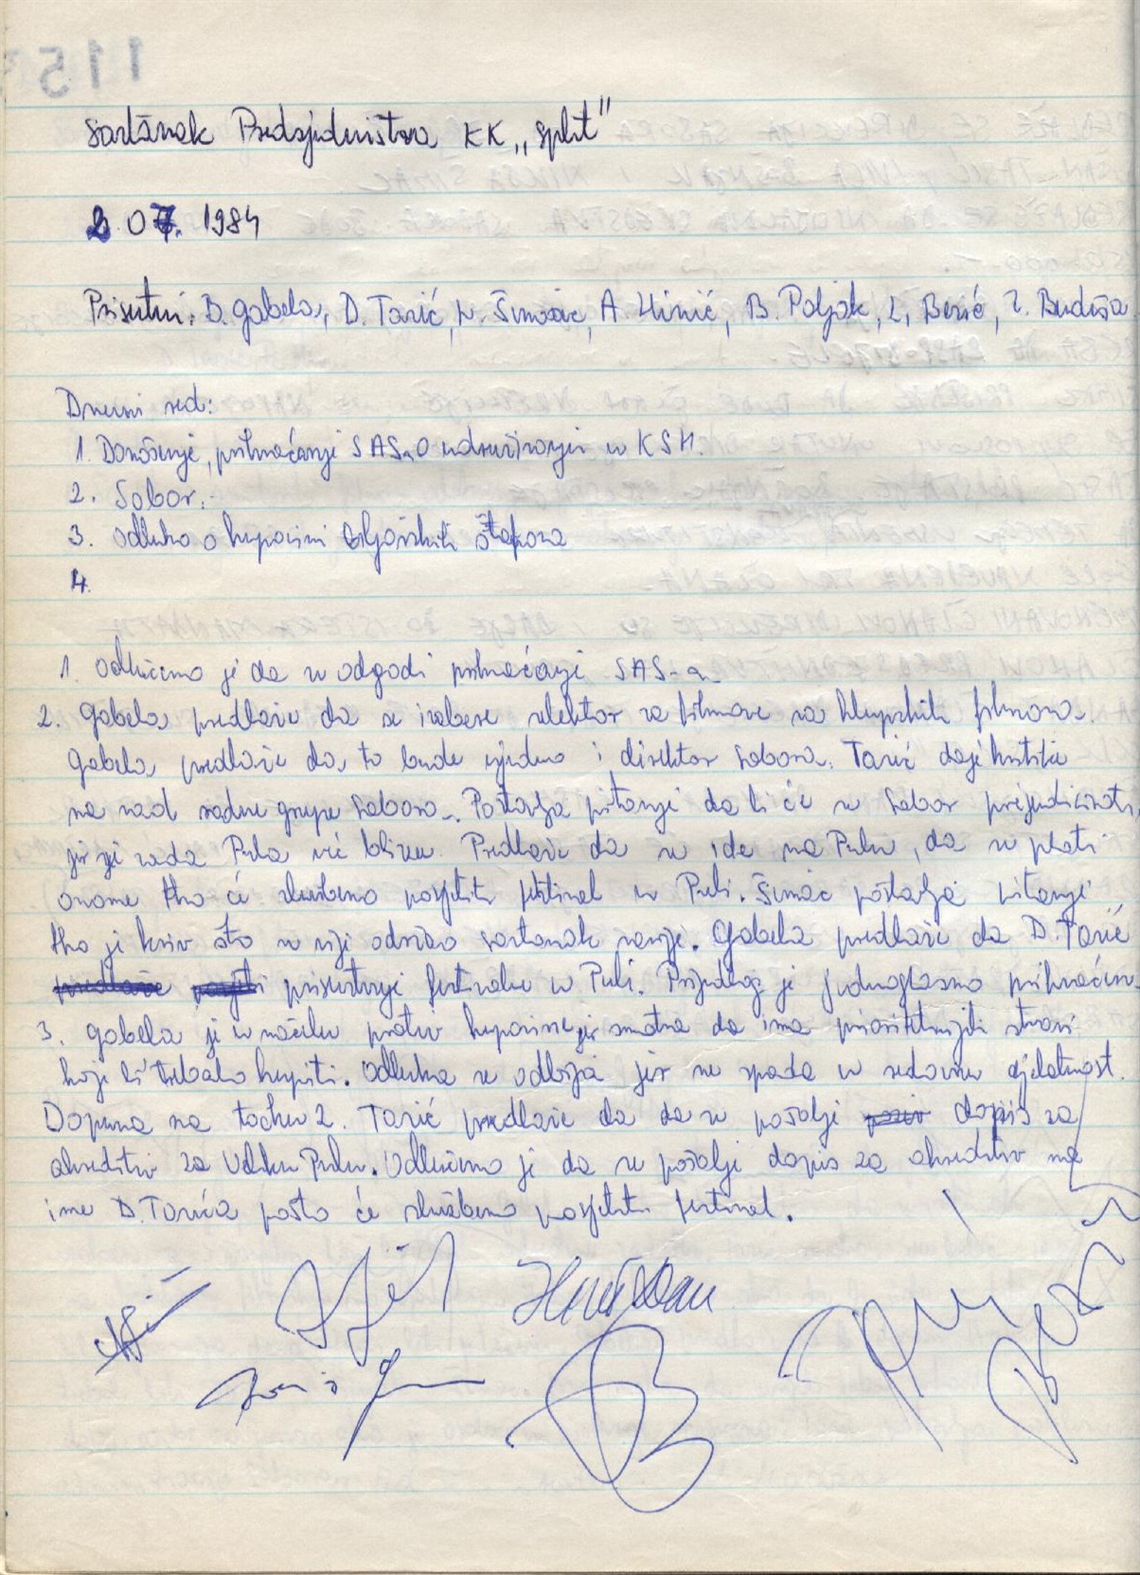 Sastanak Predsjedništva KK „Split"
2 07. 1984
Prisutni: B. Gabela, D. Tarić, N. Šimac, A. Hinić, B. Poljak, L. Berić, Z. Budiša
Dnevni red:
1. Donošenje, prihvaćanje SAS-a O udruživanju u KSH.
2. Sabor.
3. Odluka o kupovini biljarskih štapova
4.
1. Odlučeno je da se odgodi prihvaćanje SAS-a.
2. Gabela predlaže da se izabere selektor za filmove sa klupskih filmova.
Gabela predlaže da to bude ujedno i direktor Sabora. Tarić daje kritiku
na rad radne grupe Sabora. Postavlja pitanje da li će se Sabor prejudicirati,
jer je sada Pula već blizu. Predlaže da se ide na Pulu, da se plati
onome tko će službeno posjetiti festival u Puli. Šimac postavlja pitanje
tko je kriv što se nije održao sastanak ranije. Gabela predlaže da D. Tarić
predlaže prisustvuje festivalu u Puli. Prijedlog je jednoglasno prihvaćen.
3. Gabela je u načelu protiv kupovine jer smatra da ima prioritetnijih stvari
koje bi trebalo kupiti. Odluka se odbija jer ne spada u redovnu djelatnost.
Dopuna na točku 2. Tarić predlaže da da se pošalje poziv dopis za
akreditiv za Veliku Pulu. Odlučeno je da se pošalje dopis za akreditiv na
ime D. Tarića pošto će službeno posjetiti festival.